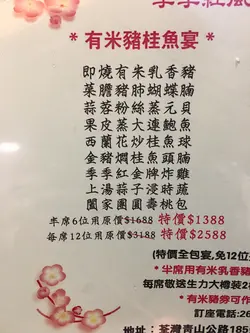 季季紅風
* 有米豬桂魚宴 *
即燒有米乳香豬
菜膽豬肺蝴蝶腩
蒜蓉粉絲蒸元貝
果皮蒸大連鮑魚
西蘭花炒桂魚球
金豬燜桂魚頭腩
季季紅金牌炸雞
上湯蒜子浸時蔬
闔家團圓壽桃包
半席6位用原價$1688 特價$1388
每席12位用原價$3188 特價$2588
(特價全包宴,免12位
*半席用有米乳香豬
每席敬送生力大樽裝2
*有米豬券可作
訂座電話:2
地址:荃灣青山公路185